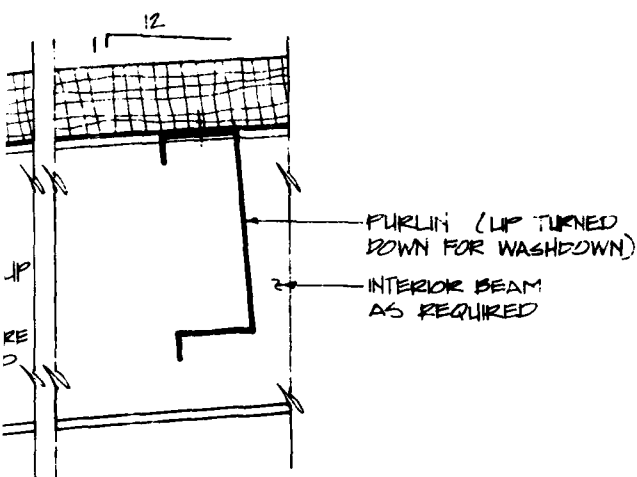 12
1
PURLIN (LIP TURNED
DOWN FOR WASHDOWN)
INTERIOR BEAM
AS REQUIRED
IP
RE